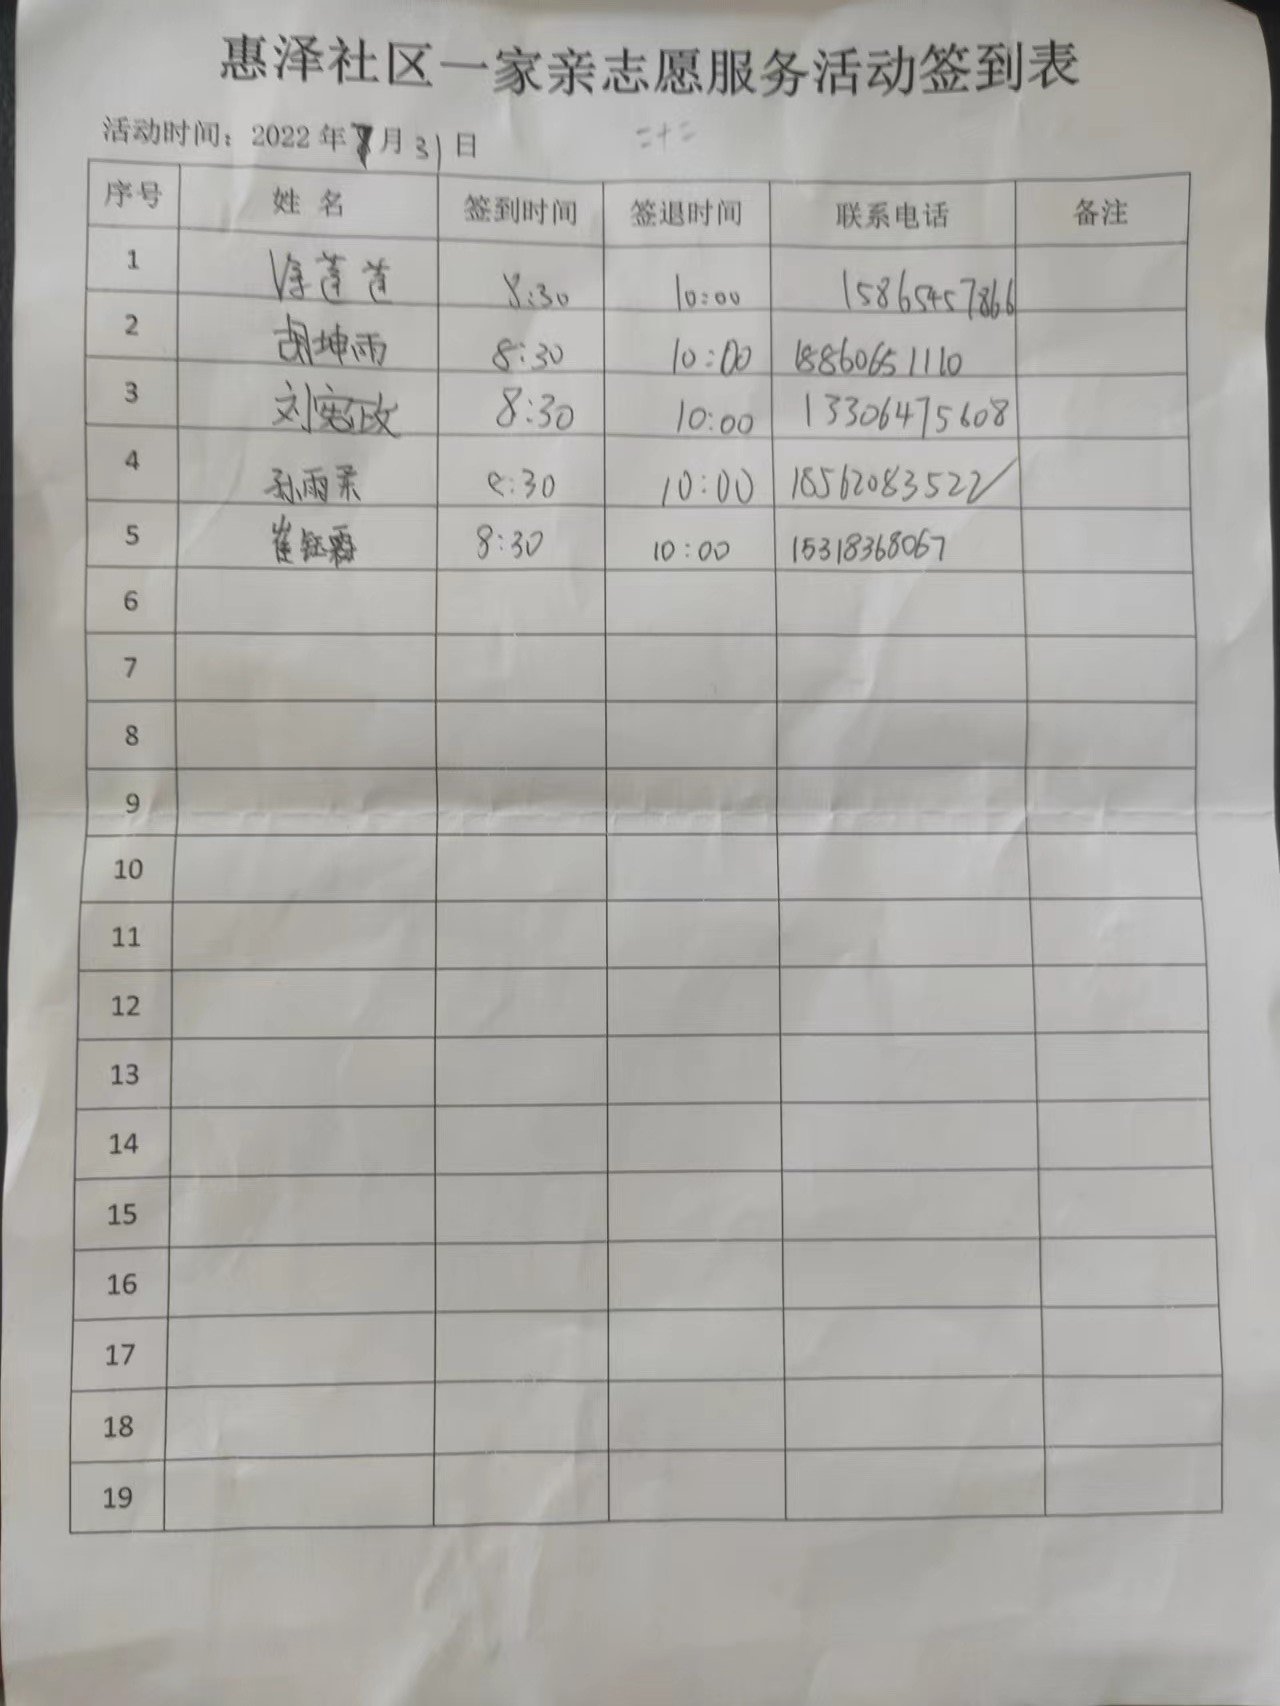 惠泽社区一家亲志愿服务活动签到表
活动时间：2022年7月31日 二十二
序号 姓名 签到时间 签退时间 联系电话 备注
1 徐莲莲 8:30 10:00 15865457866
2 胡坤雨 8:30 10:00 18860651110
3 刘宪政 8:30 10:00 13306475608
4 孙雨柔 8:30 10:00 18562083522
5 崔钰霖 8:30 10:00 15318368067
6
7
8
9
10
11
12
13
14
15
16
17
18
19